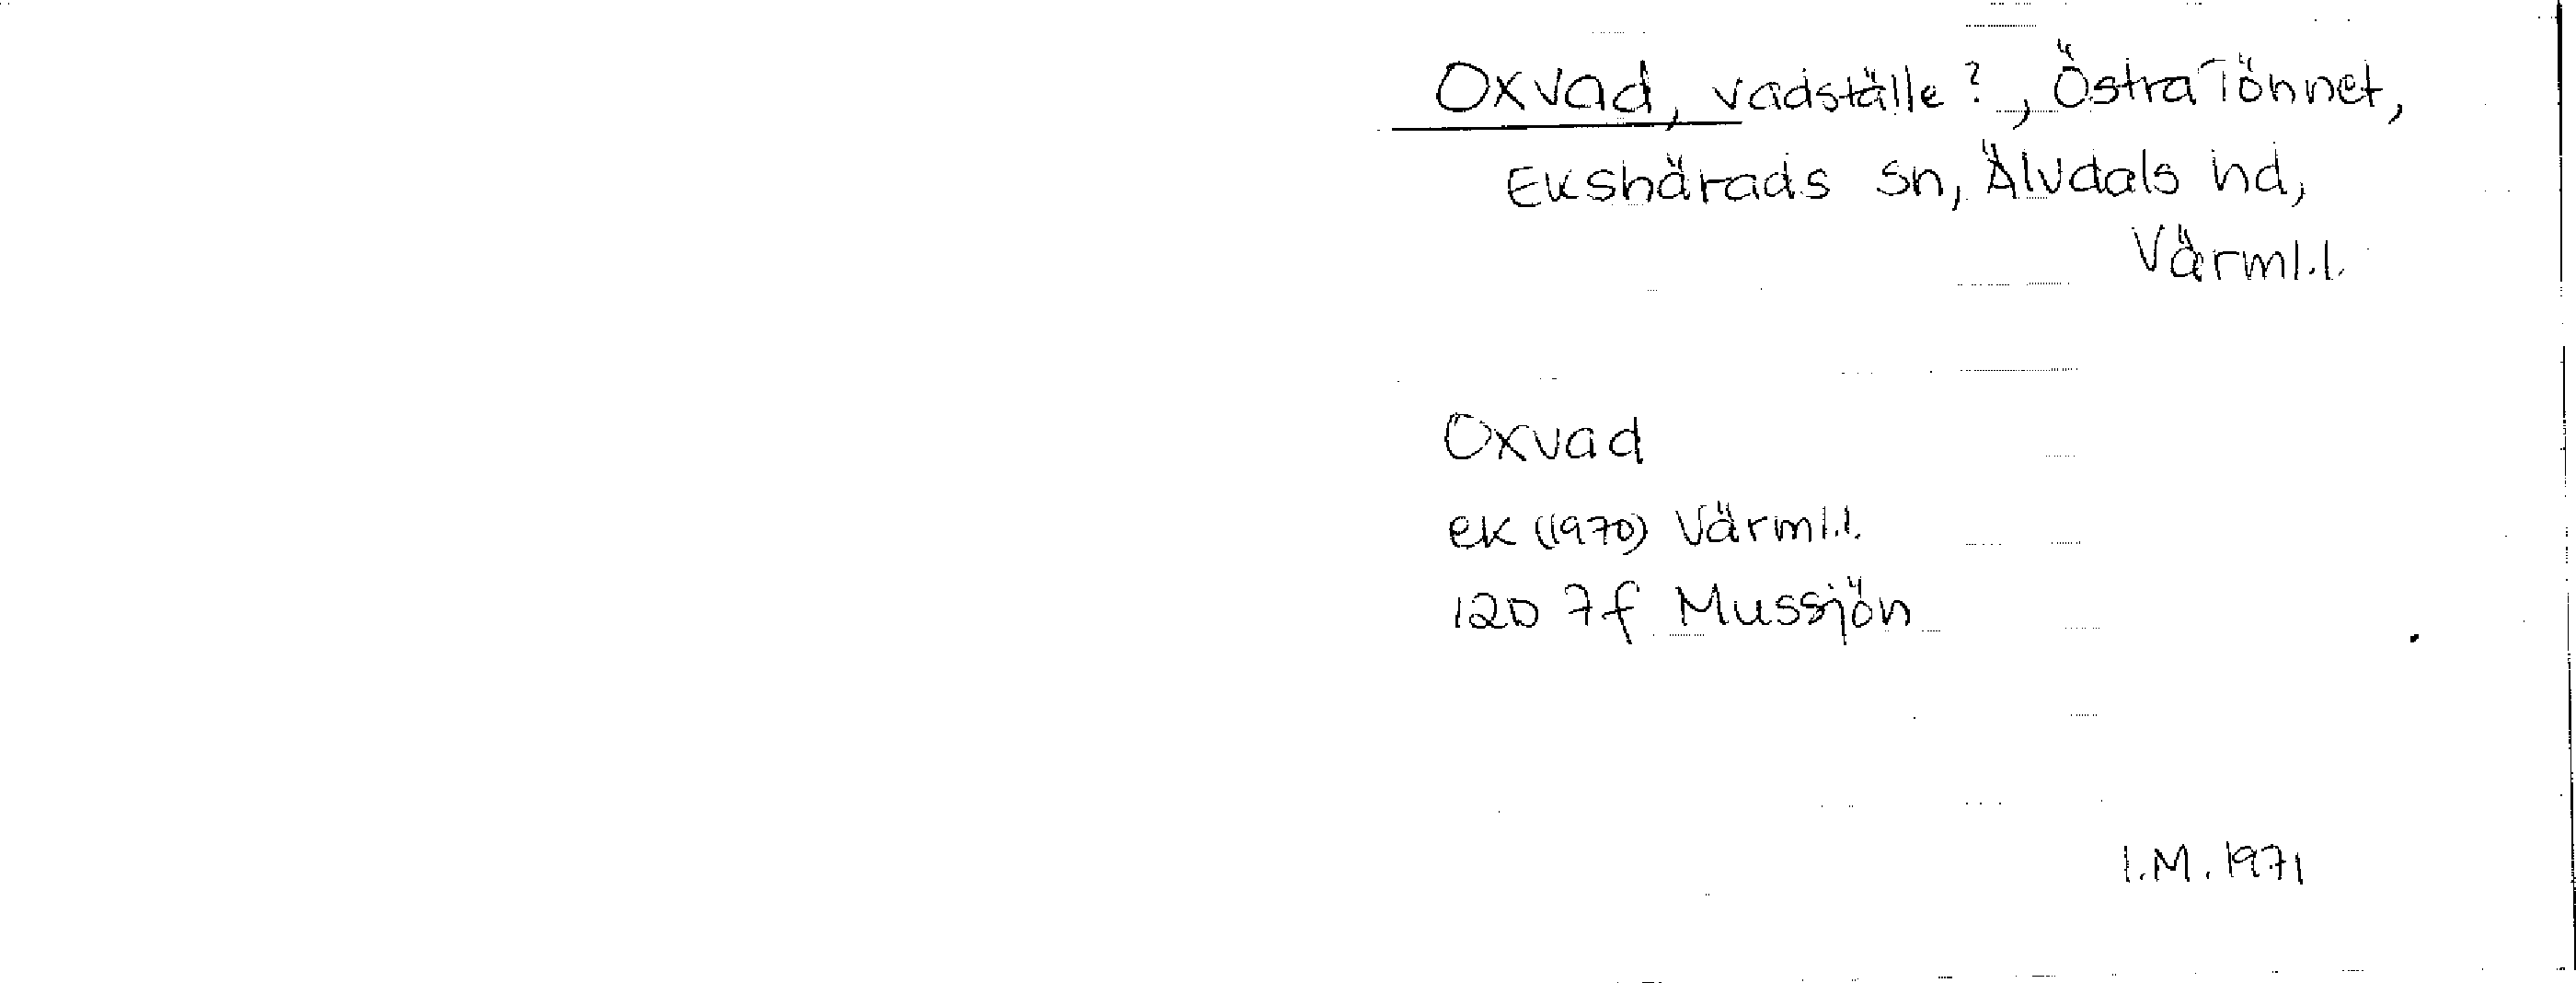 Oxvad, vadställe?, Östra Tönnet,
Ekshärads sn, Älvdals hd,
Värml.l.
Oxvad
ek (1970) Värml.l.
12D 7f Mussjön
I.M. 1971